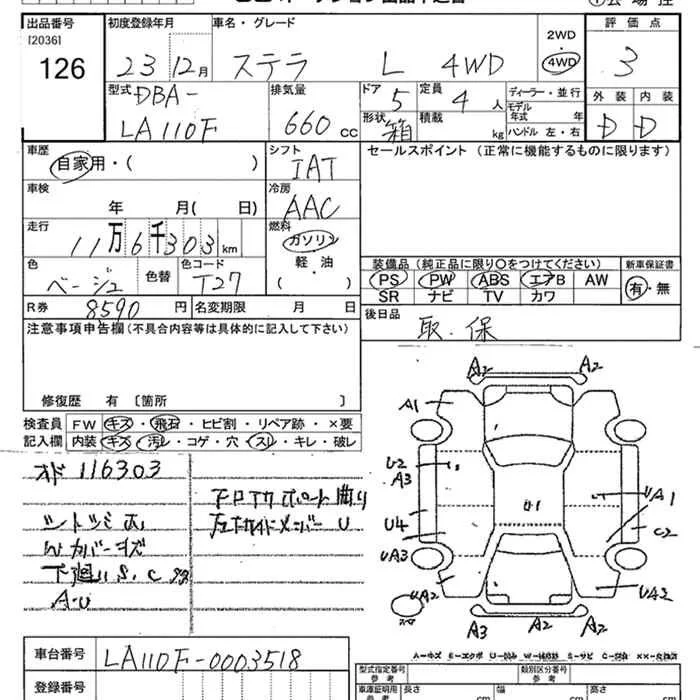 出品番号 初度登録年月 車名・グレード 2WD・4WD 評価点
[2036]
126 23 12月 ステラ L 4WD 3
型式 DBA- LA110F
排気量 660 cc
ドア 5 定員 4 人 ディーラー・並行
形状 箱 積載 kg モデル年式 年
ハンドル 左・右
外装 内装
D D
車歴 自家用・( )
シフト IAT
セールスポイント (正常に機能するものに限ります)
車検 年 月( 日)
冷房 AAC
走行 11万6千303km
燃料 ガソリン 軽・油 ( )
色 ベージュ 色替 色コード T27
装備品 (純正品に限り○をつけてください) 新車保証書
PS PW ABS エアB AW 有・無
SR ナビ TV カワ
R券 8590 円 名変期限 月 日
後日品 取.保
注意事項申告欄 (不具合内容等は具体的に記入して下さい)
修復歴 有 〔箇所 〕
検査員 FW キズ・飛石・ヒビ割・リペア跡・×要
記入欄 内装 キズ・汚レ・コゲ・穴・スレ・キレ・破レ
オド 116303
W カバーキズ
下廻り S.C
A・U
A2 A2
A1
U2
A3
U1
UA1
U4
C2
UA3
UA2
UA2
A3 A2 A2
車台番号 LA110F-0003518
登録番号
型式指定番号 参考 類別区分番号 参考
車庫証明用 参考 長さ cm 幅 cm 高さ cm